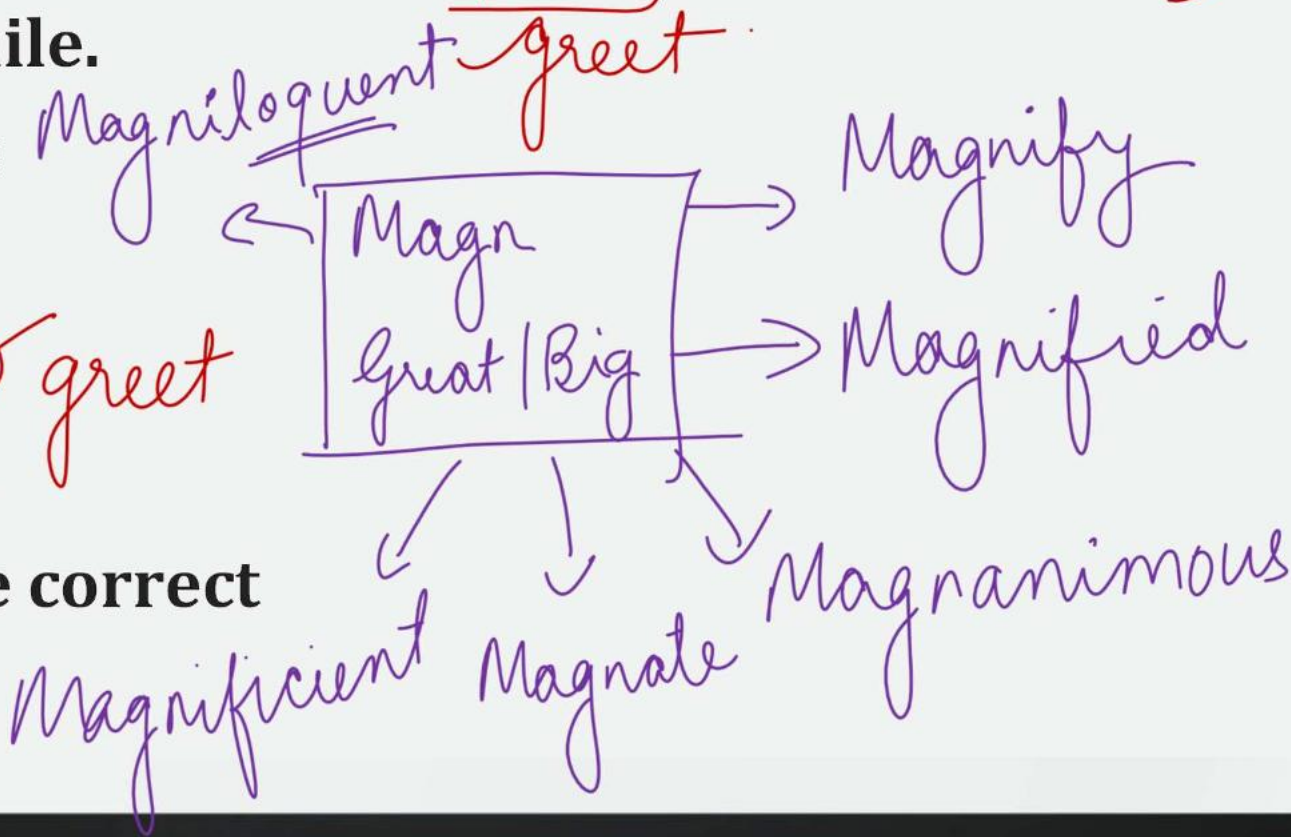 ile.
greet
Magniloquent
Magnify
Magn
Great | Big
Magnified
greet
e correct
Magnificient
Magnate
Magnanimous